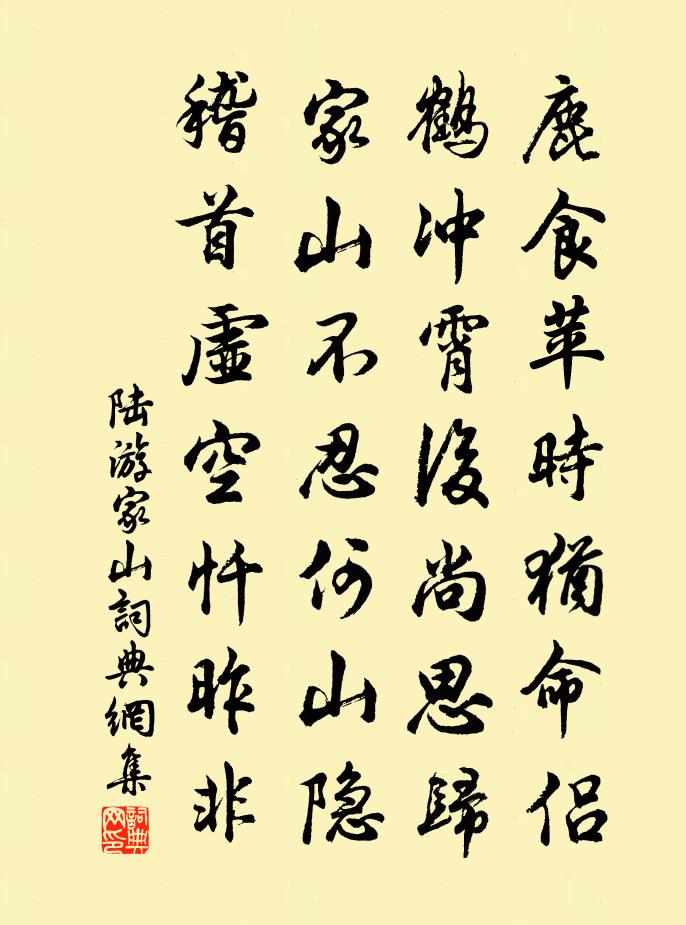 鹿食苹時猶命侣
鶴冲霄後尚思歸
家山不忍何山隐
稽首虚空忏昨非
陆游家山詞典網集
詞典
网印